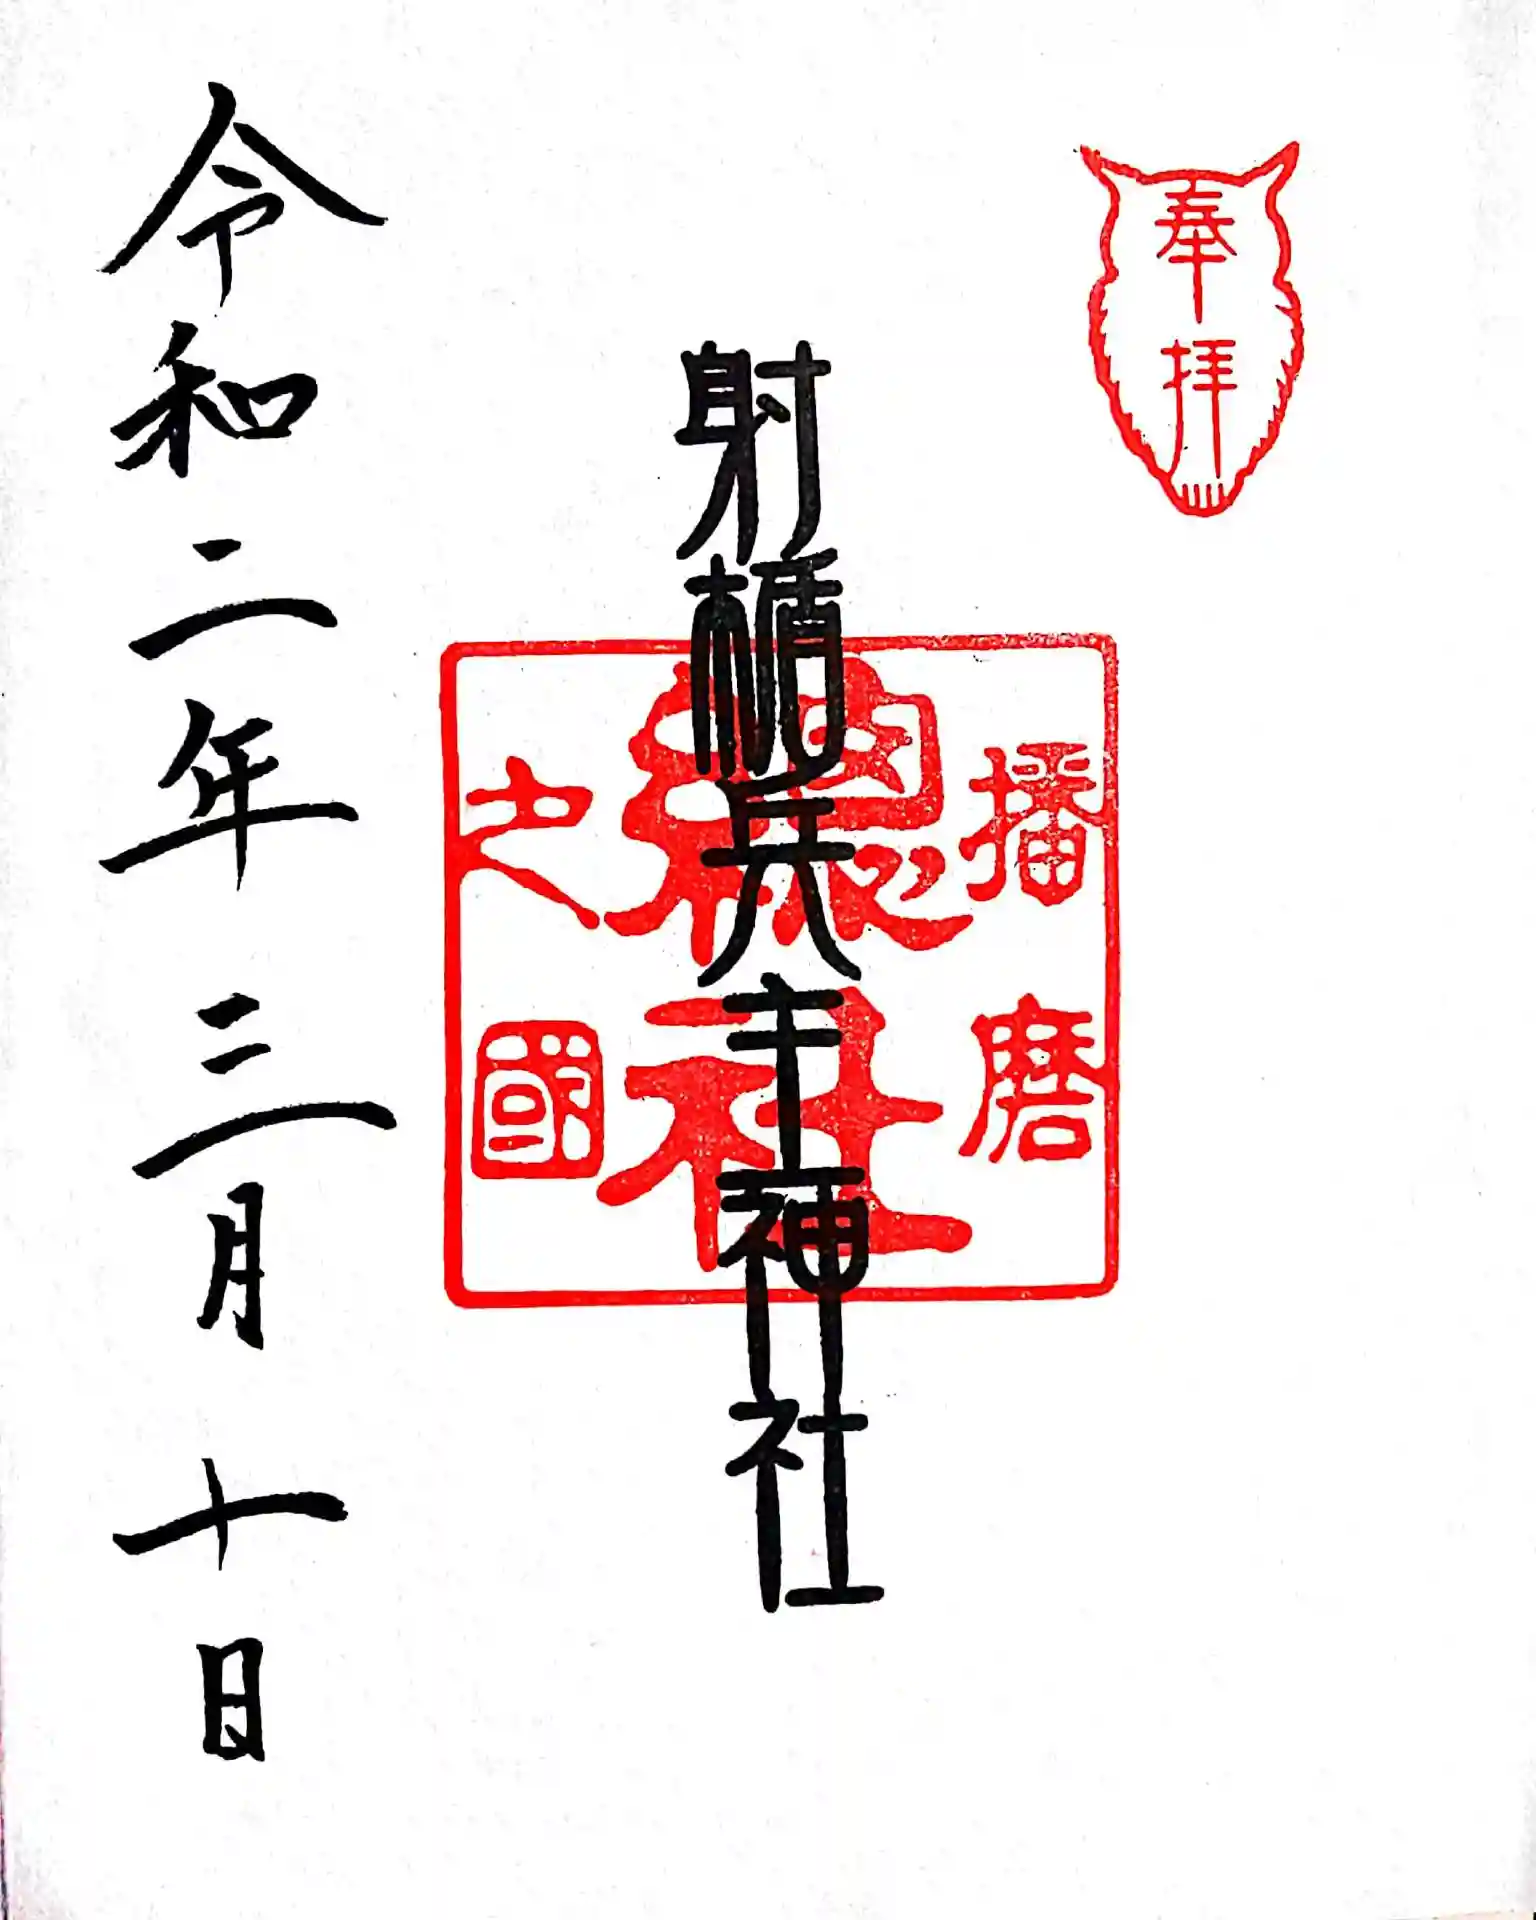 奉拝
播磨
總社
之國
射楯兵主神社
令和二年三月十日